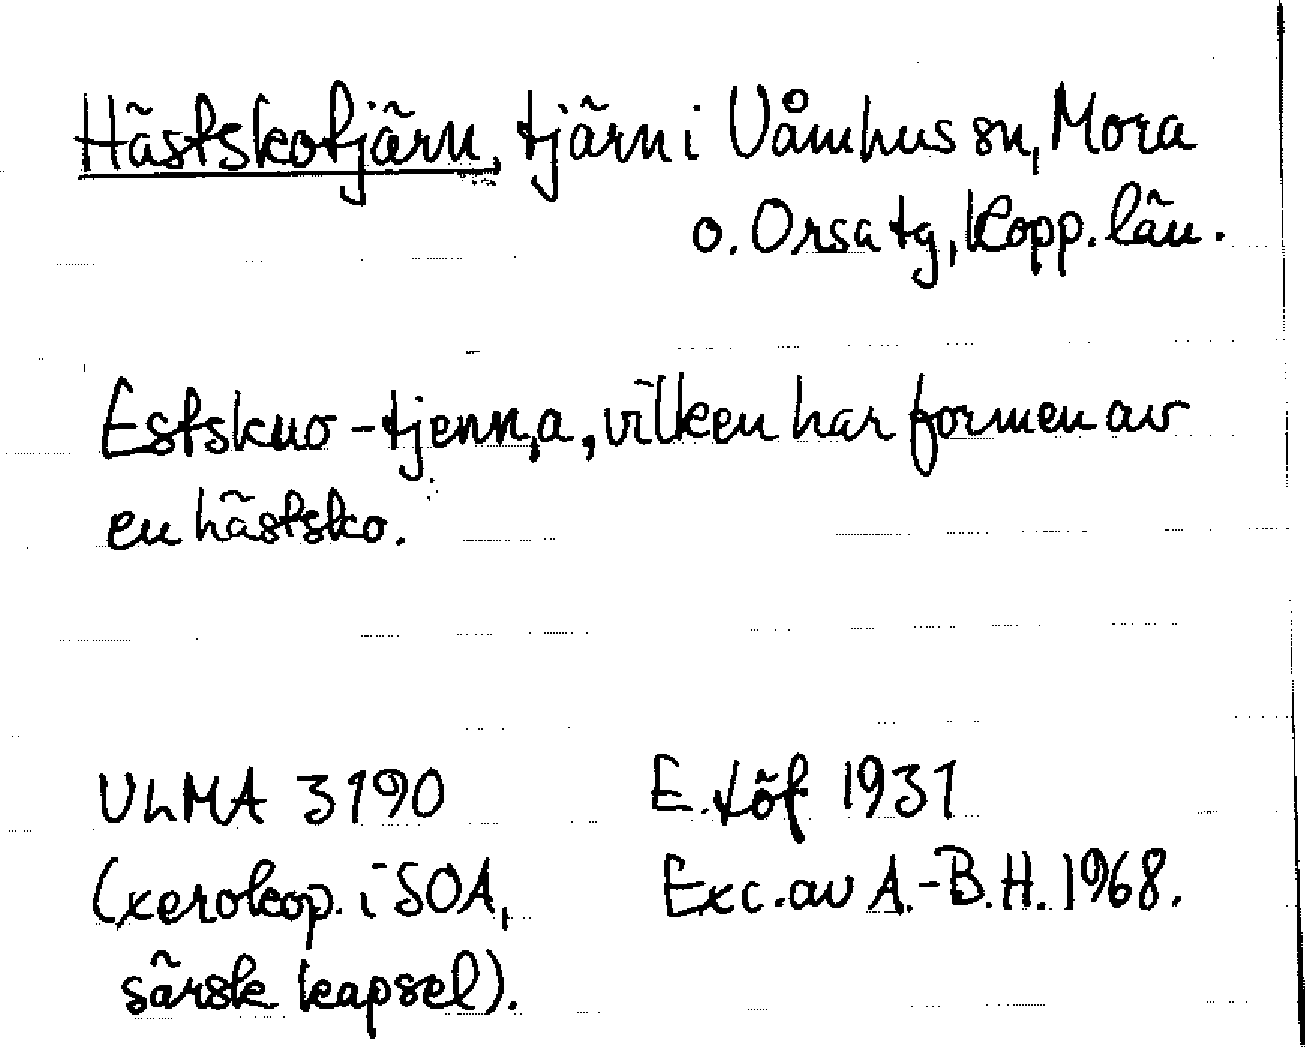 Hästskotjärn, tjärn i Våmhus sn, Mora
o. Orsa tg, Kopp. län.
Estskuo-tjenn,a, vilken har formen av
en hästsko.
ULMA 3190 E. Löf 1931
(xerokop. i SOA, Exc. av A.-B. H. 1968.
särsk kapsel).